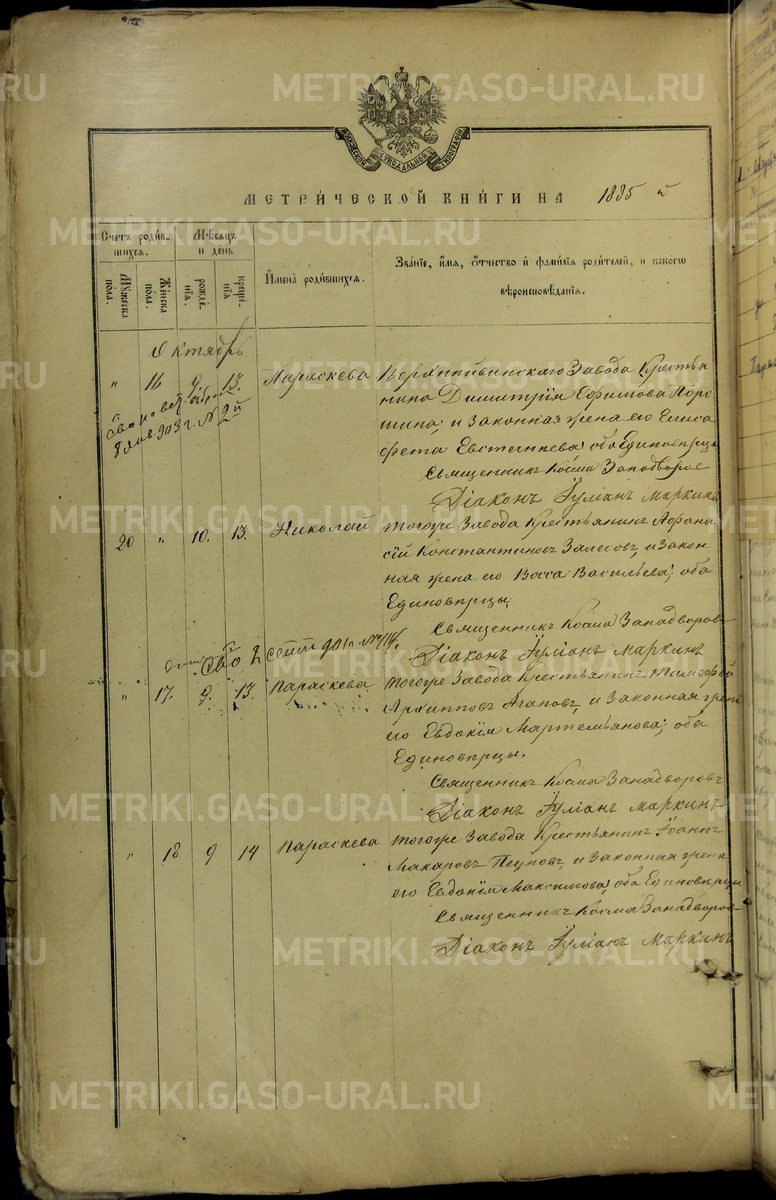 МОСКОВСКОЙ СИНОДАЛЬНОЙ ТИПОГРАФІИ
МЕТРИ́ЧЕСКОЙ КНИ́ГИ НА 1885 й
Счетъ роди́вшихся.
Мѣсяцъ и день
И҆мена̀ роди́вшихся.
Зва́ніе, и҆́мя, ѻ҆́тчество и҆ фами́лія роди́телей, и҆ какогѡ вѣроисповѣ́данія.
Мꙋжеска по́ла.
Же́нска по́ла.
рожде́нія.
креще́нія
Октябрь
" 16 9. 13. Параскева
Верхнейвинскаго Завода Крестья
нина Димитрія Ефимова
и законная жена его Елиса
фета Евстегнеева; оба Единоверцы
Священникъ Косма Западворов
Діаконъ Іуліанъ Маркинъ
8 янв. 903 г. №
20 " 10. 13. Николай
тогоже Завода Крестьянинъ Афана
сій Константиновъ Залесов, и закон
ная жена его Васса Васильева; оба
Единоверцы,
Священникъ Косма Западворовъ
Діаконъ Іуліанъ Маркинъ
" 17. 9. 13. Параскева.
тогоже Завода Крестьянинъ Тимофей
Архиппов Агапов, и Законная жена
его Евдокія Мартемьянова; оба
Единоверцы.
Священникъ Косма Западворовъ
Діаконъ Іуліанъ Маркинъ
" 18 9 14 Параскева
тогоже Завода Крестьянинъ Іоаннъ
Макаровъ и законная жена
его Евдокія Максимова, оба Единоверцы
Священникъ Косма Западворов
Діаконъ Іуліанъ Маркинъ
METRIKI.GASO-URAL.RU